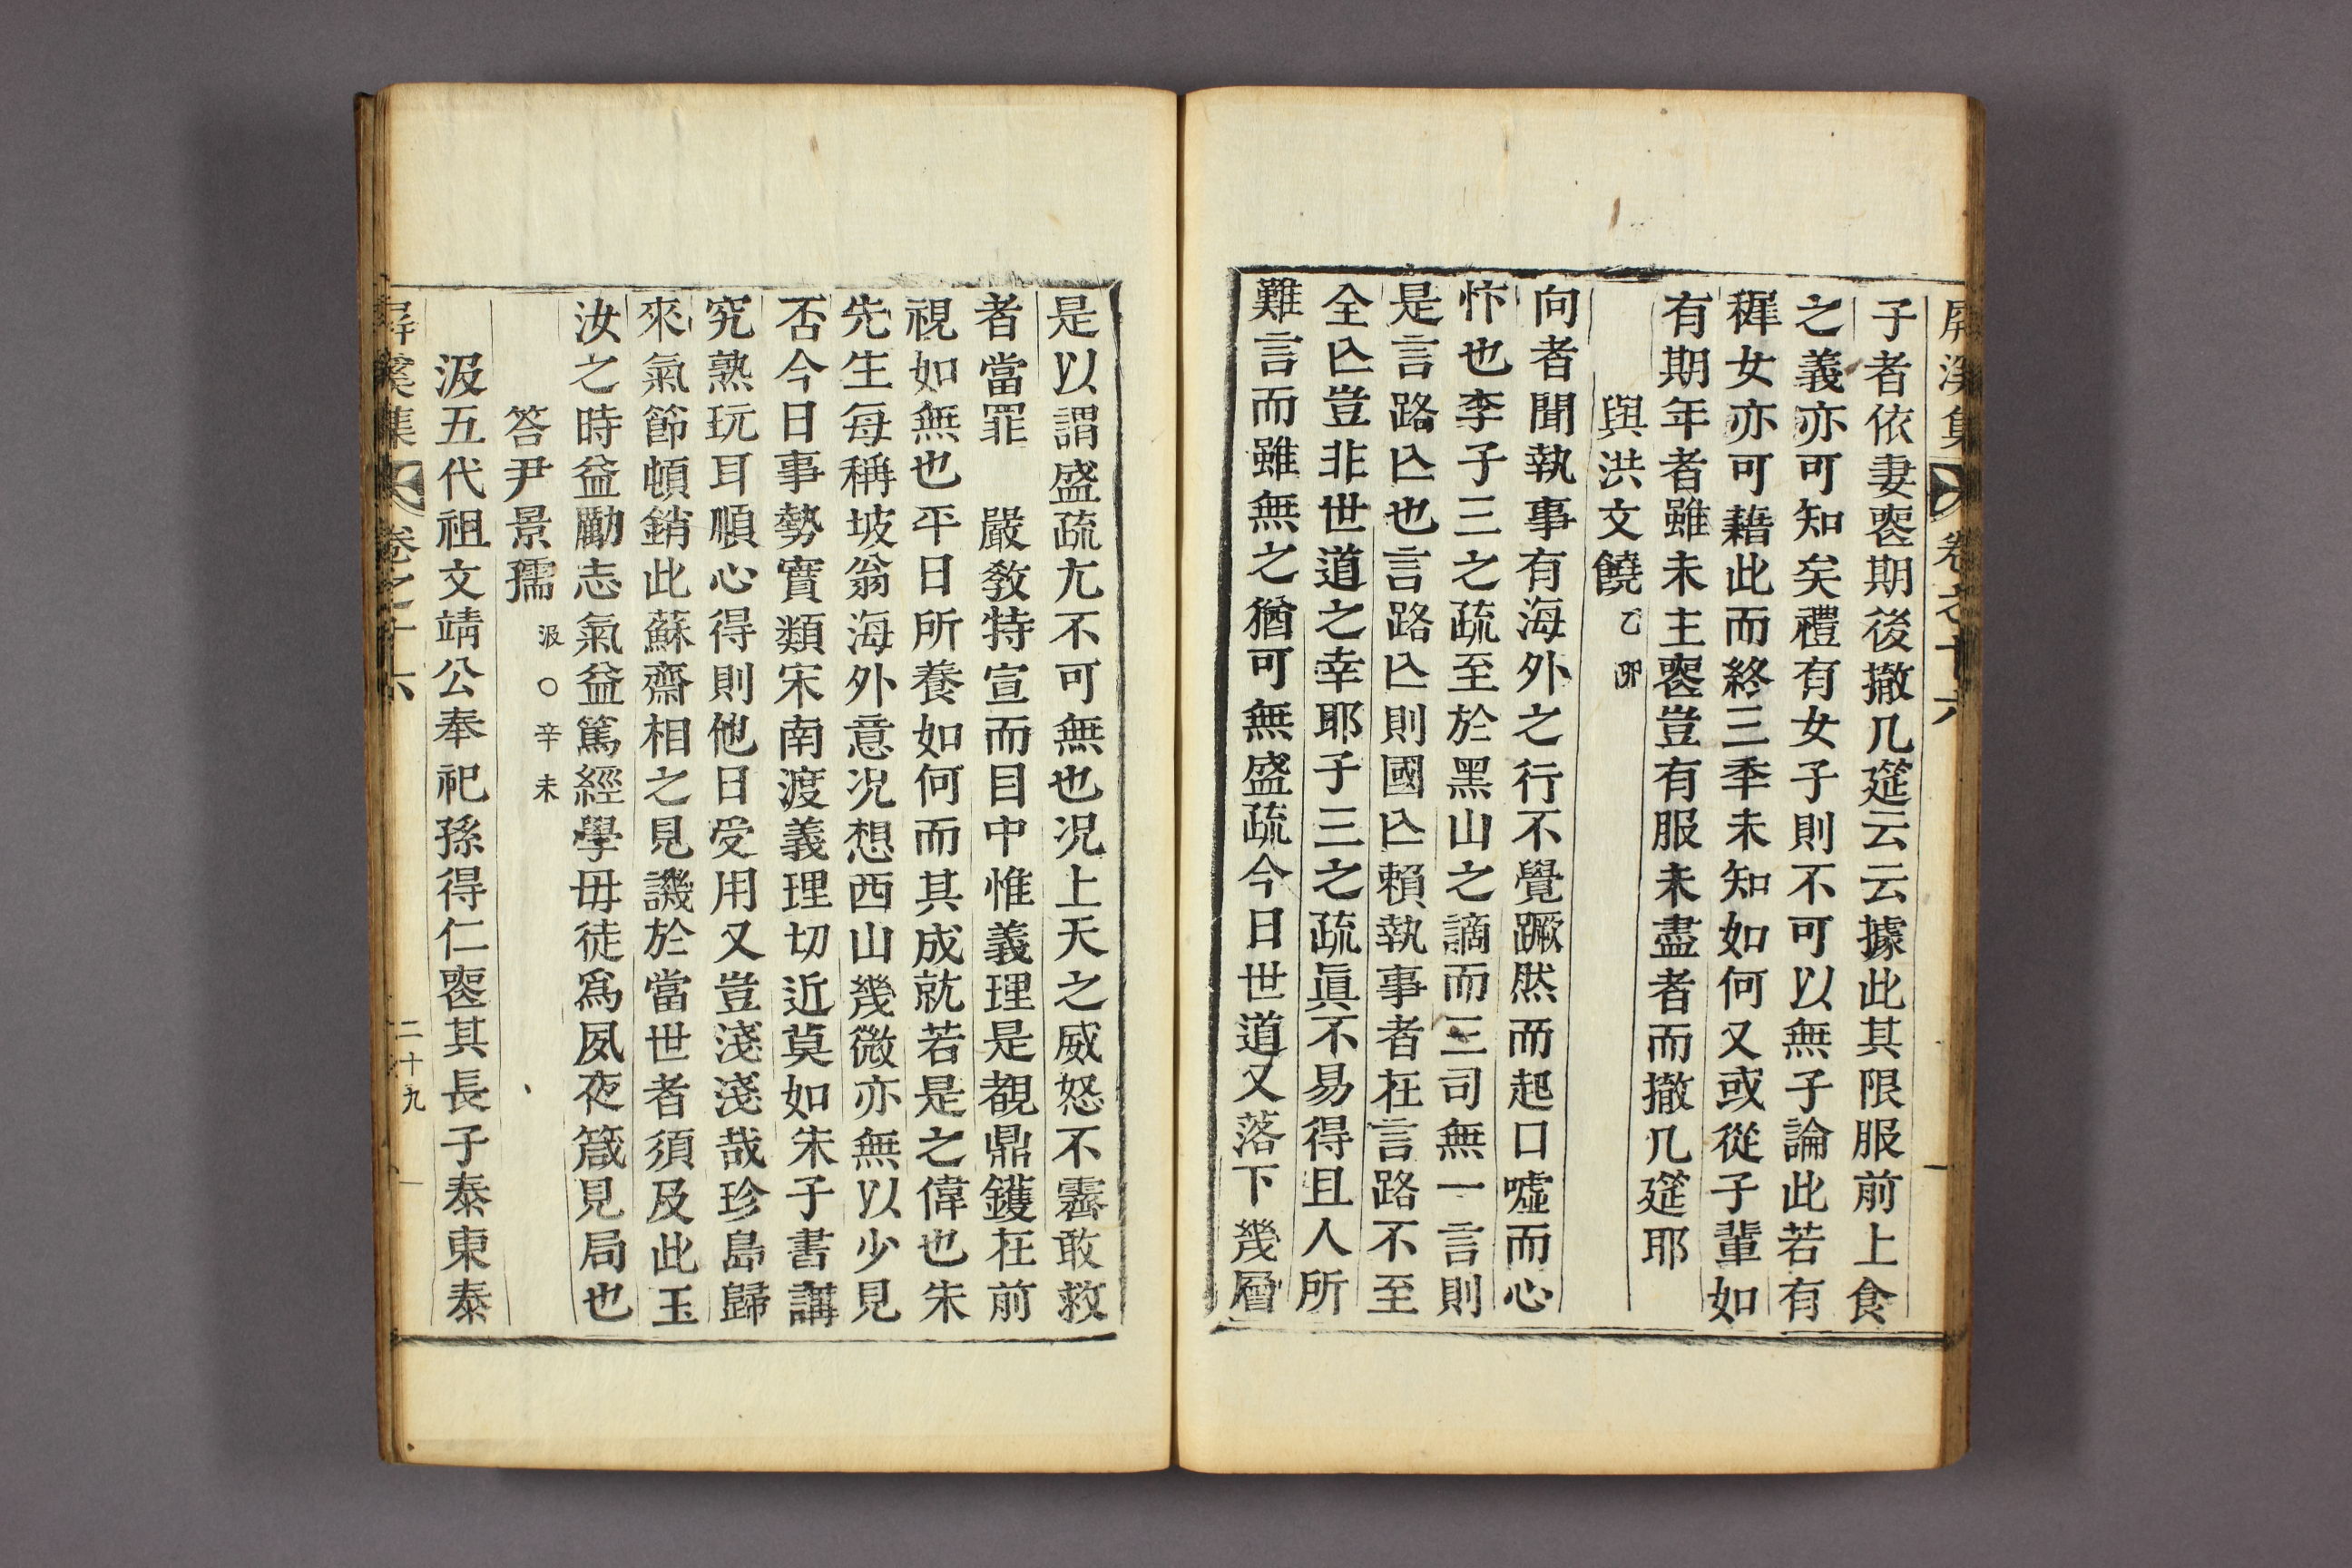 屛溪集 卷之十六
子者依妻喪期後撤几筵云云據此其限服前上食
之義亦可知矣禮有女子則不可以無子論此若有
穉女亦可藉此而終三秊未知如何又或從子輩如
有期年者雖未主喪豈有服未盡者而撤几筵耶
與洪文饒 乙卯
向者聞執事有海外之行不覺蹶然而起口噓而心
忭也李子三之疏至於黑山之謫而三司無一言則
是言路亾也言路亾則國亾賴執事者在言路不至
全亾豈非世道之幸耶子三之疏眞不易得且人所
難言而雖無之猶可無盛疏今日世道又落下幾層
是以謂盛疏尤不可無也况上天之威怒不霽敢救
者當罪 嚴敎特宣而目中惟義理是覩鼎鑊在前
視如無也平日所養如何而其成就若是之偉也朱
先生每稱坡翁海外意况想西山幾微亦無以少見
否今日事勢實類宋南渡義理切近莫如朱子書講
究熟玩耳順心得則他日受用又豈淺淺哉珍島歸
來氣節頓銷此蘇齋相之見譏於當世者須及此玉
汝之時益勵志氣益篤經學毋徒爲夙夜箴見局也
答尹景孺 汲○辛未
汲五代祖文靖公奉祀孫得仁喪其長子泰東泰
屛溪集 卷之十六 二十九